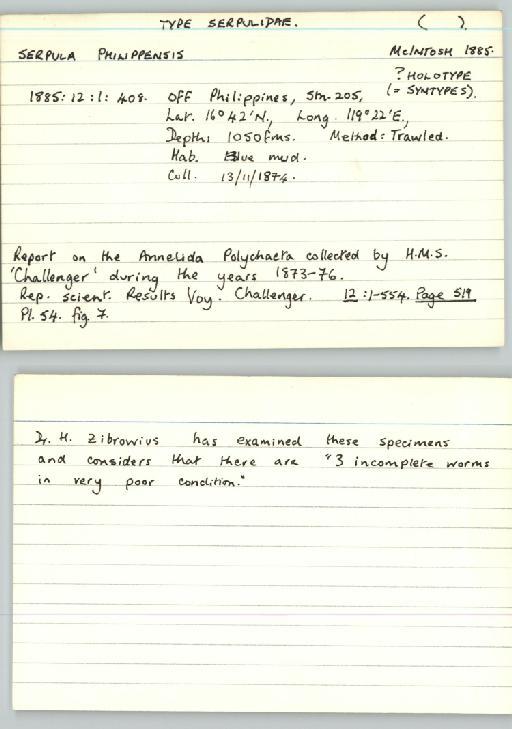 TYPE SERPULIDAE. ( ).
SERPULA PHILIPPENSIS McINTOSH 1885.
? HOLOTYPE
(= SYNTYPES).
1885:12:1:408. Off Philippines, Stn. 205,
Lat. 16°42'N., Long. 119°22'E.,
Depth: 1050fms. Method: Trawled.
Hab. Blue mud.
Coll. 13/11/1874.
Report on the Annelida Polychaeta collected by H.M.S.
'Challenger' during the years 1873-76.
Rep. scient. Results Voy. Challenger. 12:1-554. Page 519
Pl. 54. fig. 7.
Dr. H. Zibrowius has examined these specimens
and considers that there are "3 incomplete worms
in very poor condition."